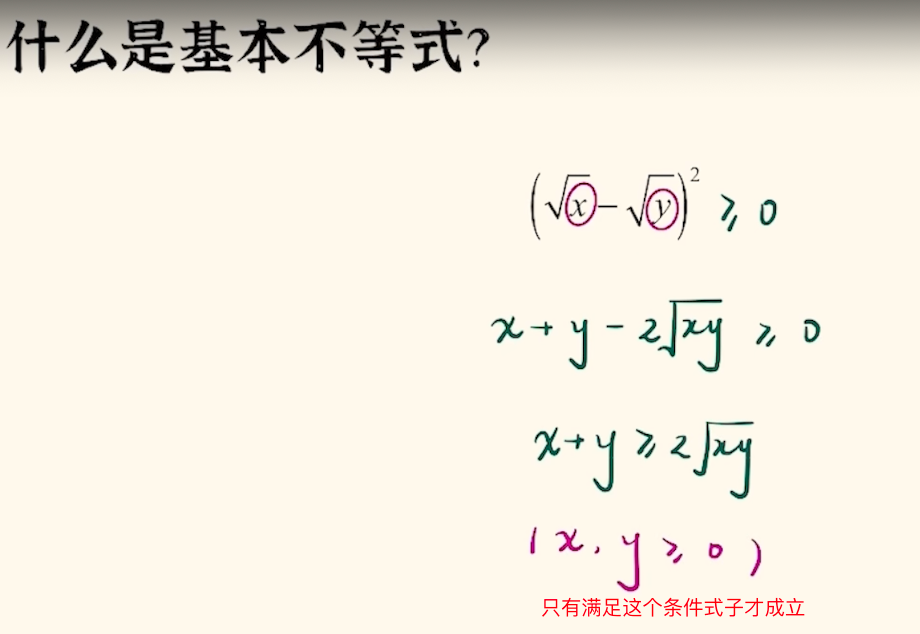 什么是基本不等式?
(√x − √y)² ≥ 0
x + y − 2√xy ≥ 0
x + y ≥ 2√xy
(x, y ≥ 0)
只有满足这个条件式子才成立